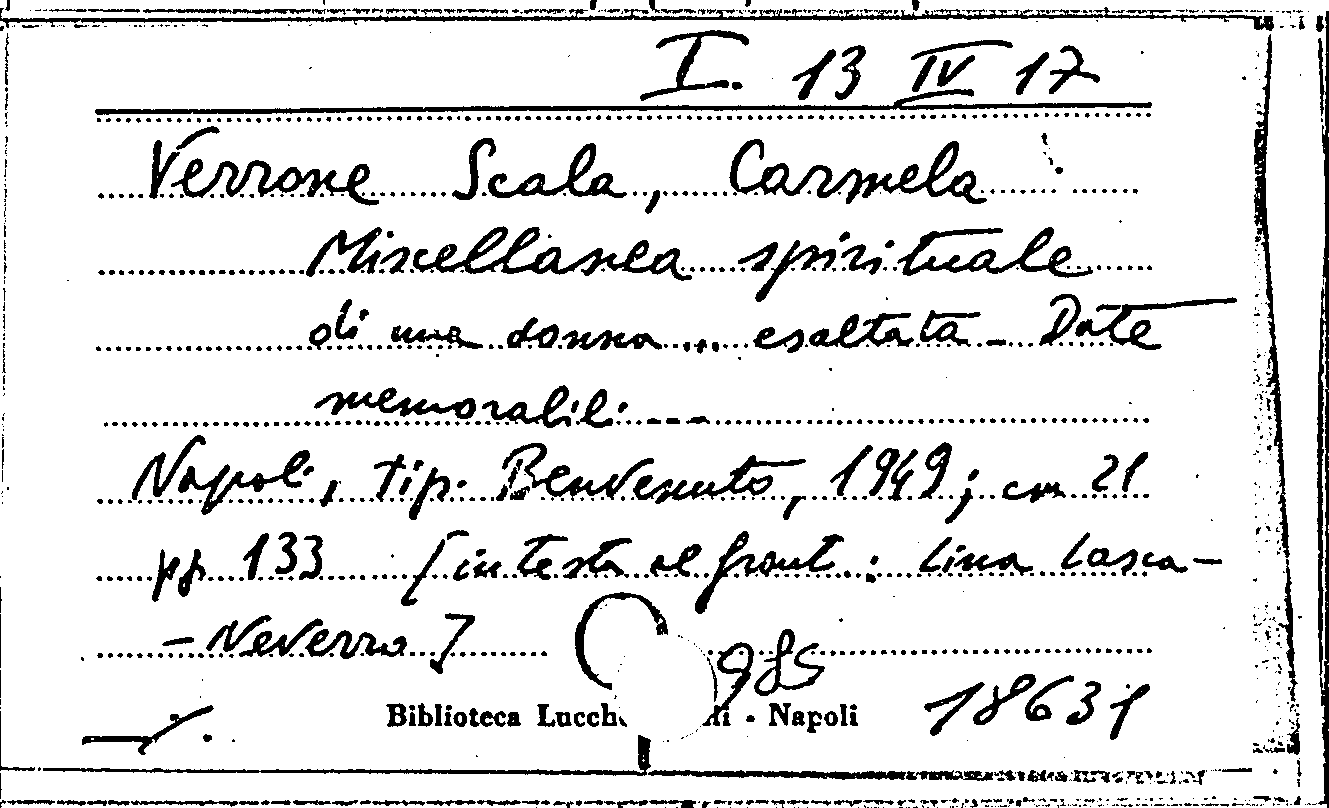 I. 13 IV 17
Verrone Scala, Carmela
Miscellanea spirituale
di una donna ... esaltata - Date
memorabili ---
Napoli, tip. Benvenuto, 1949; cm 21
pp. 133 [in testa al front.: Lina Lasca-
- Neverra]
985
Biblioteca Lucch li - Napoli
18631